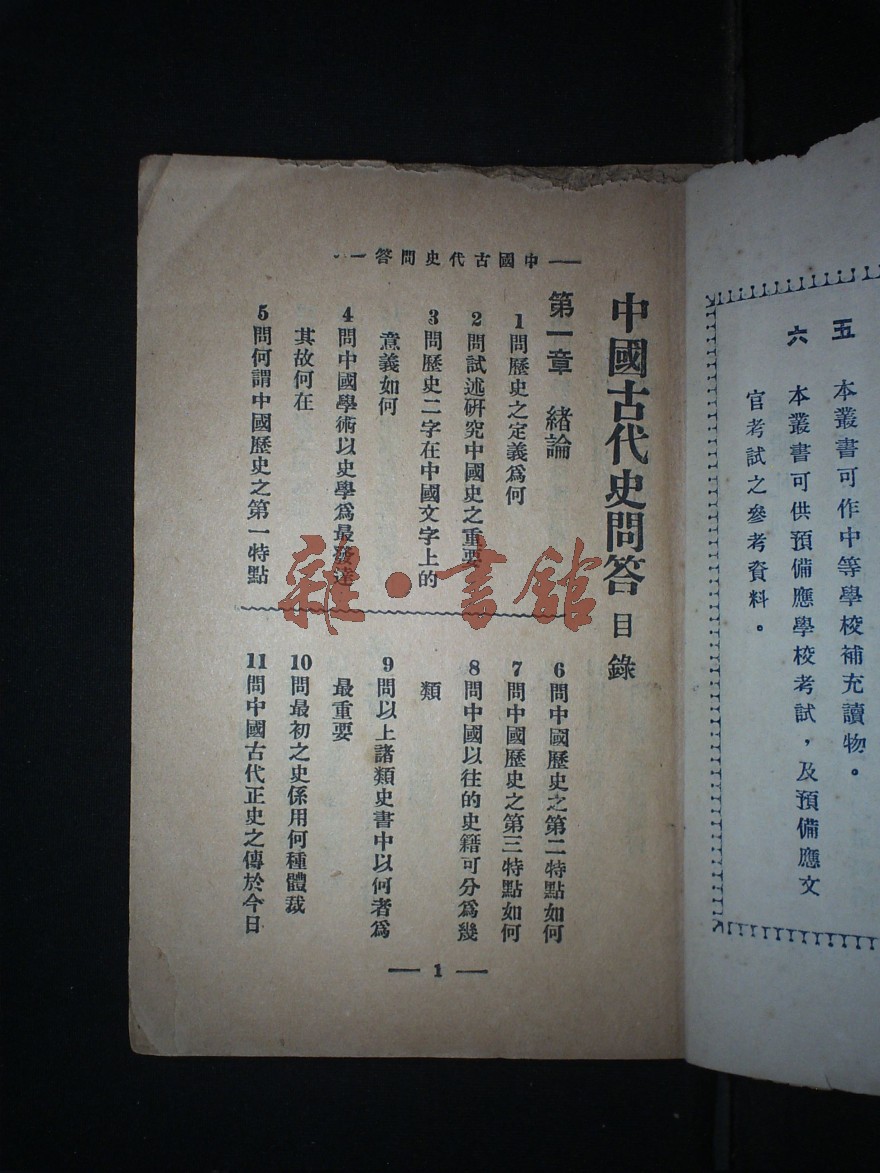 五　本叢書可作中等學校補充讀物。
六　本叢書可供預備應學校考試，及預備應文
官考試之參考資料。
中國古代史問答
中國古代史問答 目錄
第一章　緒論
1 問歷史之定義爲何
2 問試述研究中國史之重要
3 問歷史二字在中國文字上的
意義如何
4 問中國學術以史學爲最發達
其故何在
5 問何謂中國歷史之第一特點
6 問中國歷史之第二特點如何
7 問中國歷史之第三特點如何
8 問中國以往的史籍可分爲幾
類
9 問以上諸類史書中以何者爲
最重要
10 問最初之史係用何種體裁
11 問中國古代正史之傳於今日
1
雜·書館